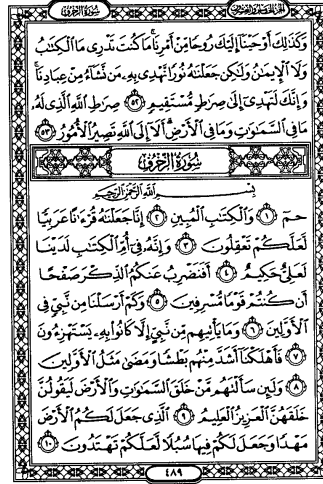 سُورَةُ الزُّخْرُفِ
الجُزْءُ الخَامِسُ وَالعِشْرُونَ
وَكَذَٰلِكَ أَوْحَيْنَا إِلَيْكَ رُوحًا مِّنْ أَمْرِنَا مَا كُنتَ تَدْرِي مَا الْكِتَٰبُ
وَلَا الْإِيمَٰنُ وَلَٰكِن جَعَلْنَٰهُ نُورًا نَّهْدِي بِهِۦ مَن نَّشَآءُ مِنْ عِبَادِنَا
وَإِنَّكَ لَتَهْدِىٓ إِلَىٰ صِرَٰطٍ مُّسْتَقِيمٍ ٥٢ صِرَٰطِ اللَّهِ الَّذِى لَهُۥ
مَا فِى السَّمَٰوَٰتِ وَمَا فِى الْأَرْضِ أَلَآ إِلَى اللَّهِ تَصِيرُ الْأُمُورُ ٥٣
سُورَةُ الزُّخْرُفِ
بِسْمِ اللَّهِ الرَّحْمَٰنِ الرَّحِيمِ
حمٓ ١ وَالْكِتَٰبِ الْمُبِينِ ٢ إِنَّا جَعَلْنَٰهُ قُرْءَٰنًا عَرَبِيًّا
لَّعَلَّكُمْ تَعْقِلُونَ ٣ وَإِنَّهُۥ فِىٓ أُمِّ الْكِتَٰبِ لَدَيْنَا
لَعَلِىٌّ حَكِيمٌ ٤ أَفَنَضْرِبُ عَنكُمُ الذِّكْرَ صَفْحًا
أَن كُنتُمْ قَوْمًا مُّسْرِفِينَ ٥ وَكَمْ أَرْسَلْنَا مِن نَّبِىٍّ فِى
الْأَوَّلِينَ ٦ وَمَا يَأْتِيهِم مِّن نَّبِىٍّ إِلَّا كَانُوا۟ بِهِۦ يَسْتَهْزِءُونَ
٧ فَأَهْلَكْنَآ أَشَدَّ مِنْهُم بَطْشًا وَمَضَىٰ مَثَلُ الْأَوَّلِينَ
٨ وَلَئِن سَأَلْتَهُم مَّنْ خَلَقَ السَّمَٰوَٰتِ وَالْأَرْضَ لَيَقُولُنَّ
خَلَقَهُنَّ الْعَزِيزُ الْعَلِيمُ ٩ الَّذِى جَعَلَ لَكُمُ الْأَرْضَ
مَهْدًا وَجَعَلَ لَكُمْ فِيهَا سُبُلًا لَّعَلَّكُمْ تَهْتَدُونَ ١٠
٤٨٩